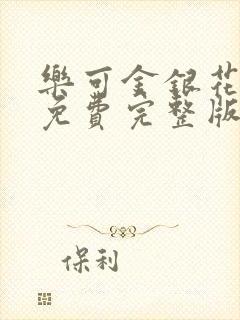 樂可金銀花
免費完整版
保利